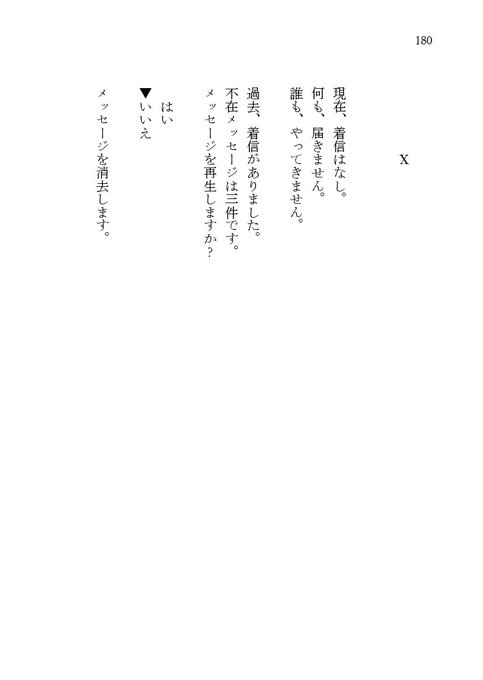 180
X
現在、着信はなし。
何も、届きません。
誰も、やってきません。
過去、着信がありました。
不在メッセージは三件です。
メッセージを再生しますか?
はい
▼いいえ
メッセージを消去します。